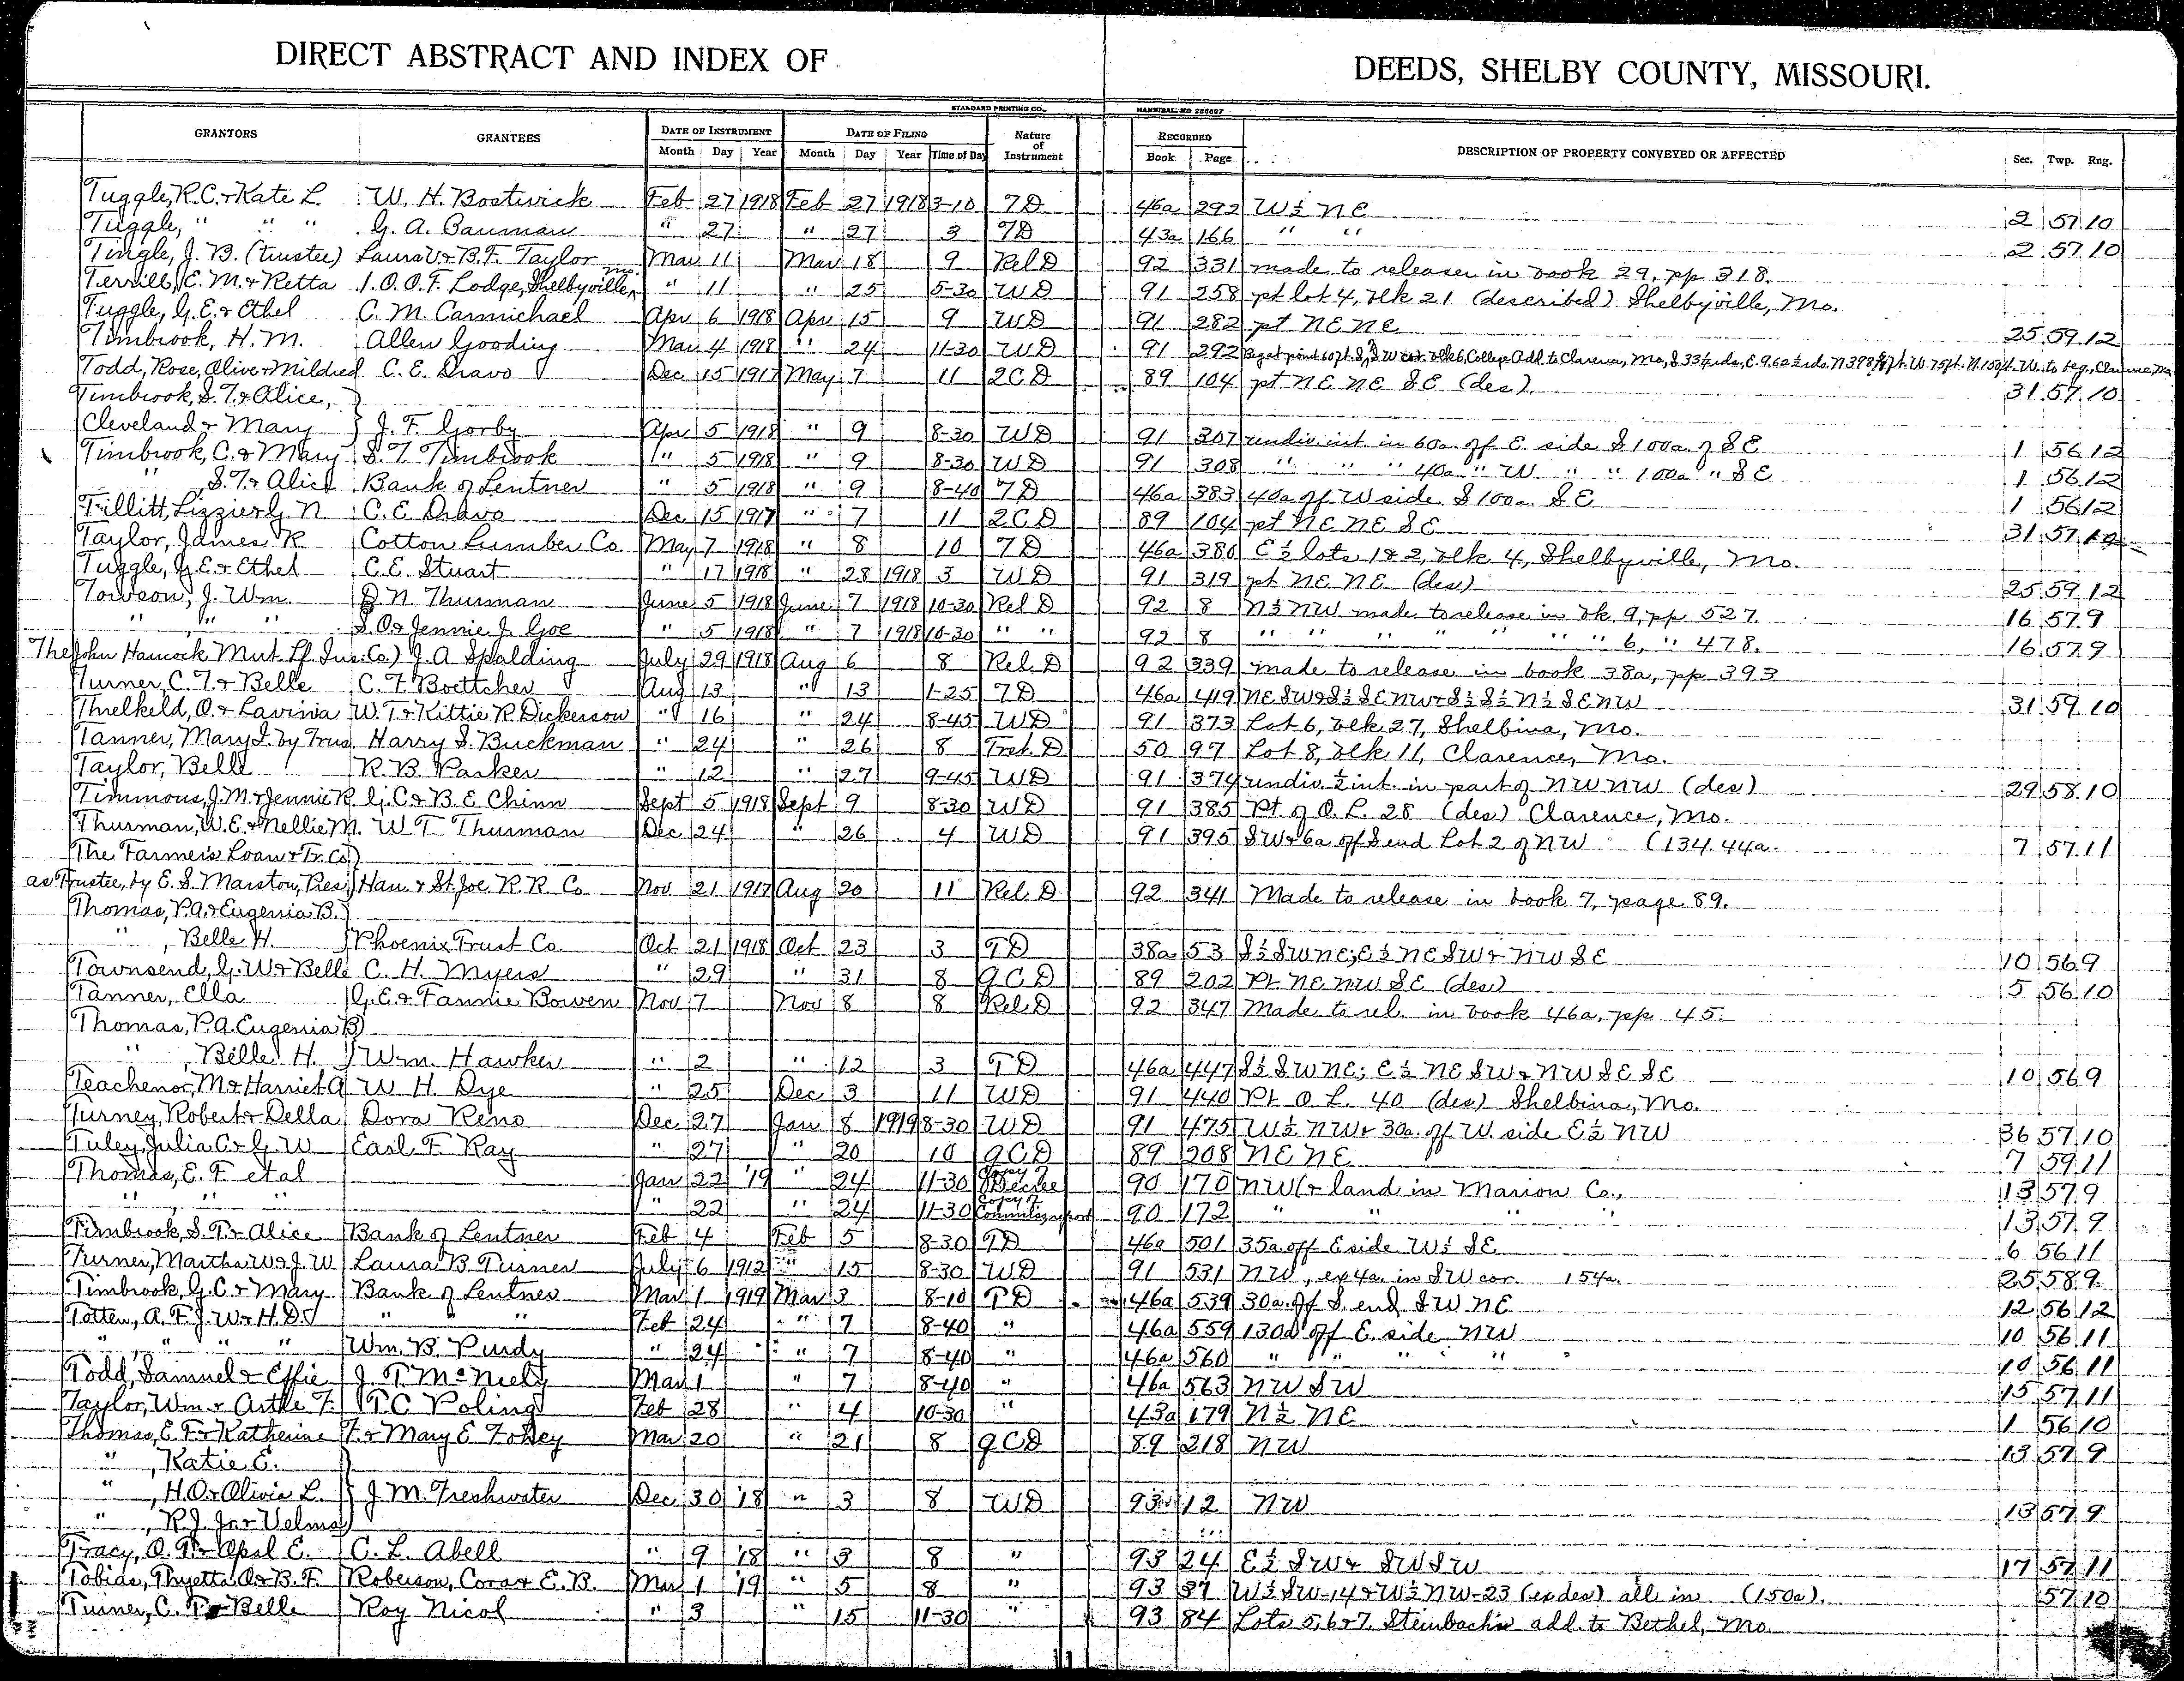 DIRECT ABSTRACT AND INDEX OF DEEDS, SHELBY COUNTY, MISSOURI.
STANDARD PRINTING CO., HANNIBAL, MO
GRANTORS GRANTEES DATE OF INSTRUMENT DATE OF FILING Nature of Instrument RECORDED DESCRIPTION OF PROPERTY CONVEYED OR AFFECTED Sec. Twp. Rng.
Month Day Year Month Day Year Time of Day Book Page
Tuggle, R.C. & Kate L. W. H. Bostwick Feb 27 1918 Feb 27 1918 3-10 TD 46a 292 W½ NE 2 57 10
Tuggle, " " " G. A. Bauman " 27 " 27 3 TD 43a 166 " " 2 57 10
Tingle, J. B. (trustee) Laura V. & B.F. Taylor Mar 11 Mar 18 9 Rel D 92 331 made to release in book 29, pp 318.
Terrill, E. M. & Retta I.O.O.F. Lodge, Shelbyville, Mo " 11 " 25 5-30 WD 91 258 pt lot 4, blk 21 (described) Shelbyville, Mo.
Tuggle, G. E. & Ethel C. M. Carmichael Apr 6 1918 Apr 15 9 WD 91 282 pt NE NE 25 59 12
Timbrook, H. M. Allen Gooding Mar 4 1918 " 24 11-30 WD 91 292 Beg at point 60 ft. S, SW cor. blk 6, College Add. to Clarence, Mo, S 33 rds, E. 9.60 rds. N 398 ft. W. 75 ft. N. 150 ft. W. to beg., Clarence, Mo
Todd, Rose, Alive & Mildred C. E. Dravo Dec 15 1917 May 7 11 2CD 89 104 pt NE NE SE (des). 31 57 10
Timbrook, S. T. & Alice, }
Cleveland & Mary } J. F. Gorby Apr 5 1918 " 9 8-30 WD 91 307 undiv. int in 60a. off E. side S 100a. of SE 1 56 12
Timbrook, C. & Mary S. T. Timbrook " 5 1918 " 9 8-30 WD 91 308 " " " 40a " W. " " 100a " SE 1 56 12
" , S. T. & Alice Bank of Lentner " 5 1918 " 9 8-40 TD 46a 383 40a off W side S 100a SE 1 56 12
Tillitt, Lizzie & G. N C. E. Dravo Dec 15 1917 " 7 11 2CD 89 104 pt NE NE SE 31 57 10
Taylor, James R Cotton Lumber Co May 7 1918 " 8 10 TD 46a 380 E½ lots 1 & 2, blk 4, Shelbyville, Mo.
Tuggle, G. E. & Ethel C. E. Stuart " 17 1918 " 28 1918 3 WD 91 319 pt NE NE (des) 25 59 12
Towson, J. Wm. D. N. Thurman June 5 1918 June 7 1918 10-30 Rel D 92 8 N½ NW made to release in bk 9, pp 527. 16 57 9
" " " S. O. & Jennie J. Goe " 5 1918 " 7 1918 10-30 " " 92 8 " " " " " " " 6, " 478. 16 57 9
The John Hancock Mut Lf Ins. Co.) J. A Spalding July 29 1918 Aug 6 8 Rel. D 92 339 made to release in book 38a, pp 393
Turner, C. T. & Belle C. F. Boettcher Aug 13 " 13 1-25 TD 46a 419 NE SW & S½ SE NW & S½ S½ N½ SE NW 31 59 10
Threlkeld, O. & Lavinia W. T. & Kittie R. Dickerson " 16 " 24 8-45 WD 91 373 Lot 6, blk 27, Shelbina, Mo.
Tanner, Mary J. by Trus. Harry S. Buckman " 24 " 26 8 Trst. D 50 97 Lot 8, blk 11, Clarence, Mo.
Taylor, Belle R. B. Parker " 12 " 27 9-45 WD 91 374 undiv. ½ int. in part of NW NW (des) 29 58 10
Timmons, J. M. & Jennie R. G. C. & B. E. Chinn Sept 5 1918 Sept 9 8-30 WD 91 385 Pt of O. L. 28 (des) Clarence, Mo.
Thurman, W. E. & Nellie M. W. T. Thurman Dec 24 " 26 4 WD 91 395 SW & 6a off S end Lot 2 of NW (134.44a. 7 57 11
The Farmers Loan & Tr. Co.)
as Trustee, by E. S. Marston, Pres) Han & St. Joe R. R. Co Nov 21 1917 Aug 20 11 Rel D 92 341 Made to release in book 7, page 89.
Thomas, P. A. & Eugenia B. }
" , Belle H. } Phoenix Trust Co. Oct 21 1918 Oct 23 3 TD 38a 53 S½ SW NE; E½ NE SW & NW SE 10 56 9
Townsend, G. W. & Belle C. H. Myers " 29 " 31 8 QCD 89 202 Pt. NE NW SE (des) 5 56 10
Tanner, Ella G. E. & Fannie Bowen Nov 7 Nov 8 8 Rel. D 92 347 Made to rel. in book 46a, pp 45.
Thomas, P. A. Eugenia B)
" , Belle H. } Wm. Hawker " 2 " 12 3 TD 46a 447 S½ SW NE; E½ NE SW & NW SE SE 10 56 9
Teachenor, M. & Harriet A W. H. Dye " 25 Dec 3 11 WD 91 440 Pt O. L. 40 (des) Shelbina, Mo.
Turney, Robert & Della Dora Reno Dec 27 Jan 8 1919 8-30 WD 91 475 W½ NW & 30a. off W. side E½ NW 36 57 10
Tuley, Julia C. & G. W Earl F. Ray " 27 " 20 10 QCD 89 208 NE NE 7 59 11
Thomas, E. F. et al Jan 22 '19 " 24 11-30 Copy of Decree 90 170 NW (& land in Marion Co., 13 57 9
" " " " 22 " 24 11-30 Copy of Commiss. report 90 172 " " " " 13 57 9
Timbrook, S. T. & Alice Bank of Lentner Feb 4 Feb 5 8-30 TD 46a 501 35a off E side W½ SE 6 56 11
Turner, Martha W. & J. W Laura B. Turner July 6 1912 " 15 8-30 WD 91 531 NW, ex 4a. in SW cor. 154a. 25 58 9
Timbrook, G. C. & Mary Bank of Lentner Mar 1 1919 Mar 3 8-10 TD 46a 539 30a. off S. end SW NE 12 56 12
Totten, A. F. J. W. & H. D. " " " Feb 24 " 7 8-40 " 46a 559 130a off E. side NW 10 56 11
" " " " Wm. B. Purdy " 24 " 7 8-40 " 46a 560 " " " " 10 56 11
Todd, Samuel & Effie J. T. McNeely Mar 1 " 7 8-40 " 46a 563 NW SW 15 57 11
Taylor, Wm. & Artke F. T. C Poling Feb 28 " 4 10-30 " 43a 179 N½ NE 1 56 10
Thomas, E. F. & Katherine F. & Mary E Fohey Mar 20 " 21 8 QCD 89 218 NW 13 57 9
" , Katie E.
" , H. O. & Olivia L. } J. M. Freshwater Dec 30 '18 " 3 8 WD 93 12 NW 13 57 9
" , R. J. Jr. & Velma)
Tracy, O. T. & Opal E. C. L. Abell " 9 '18 " 3 8 " 93 24 E½ SW & SW SW 17 57 11
Tobias, Thyetta O. & B. F. Roberson, Cora & E. B. Mar 1 '19 " 5 8 " 93 37 W½ SW-14 & W½ NW-23 (ex des) all in (150a). 57 10
Turner, C. T. & Belle Roy Nicol " 3 " 15 11-30 " 93 84 Lots 5, 6 & 7, Steinbach's add. to Bethel, Mo.